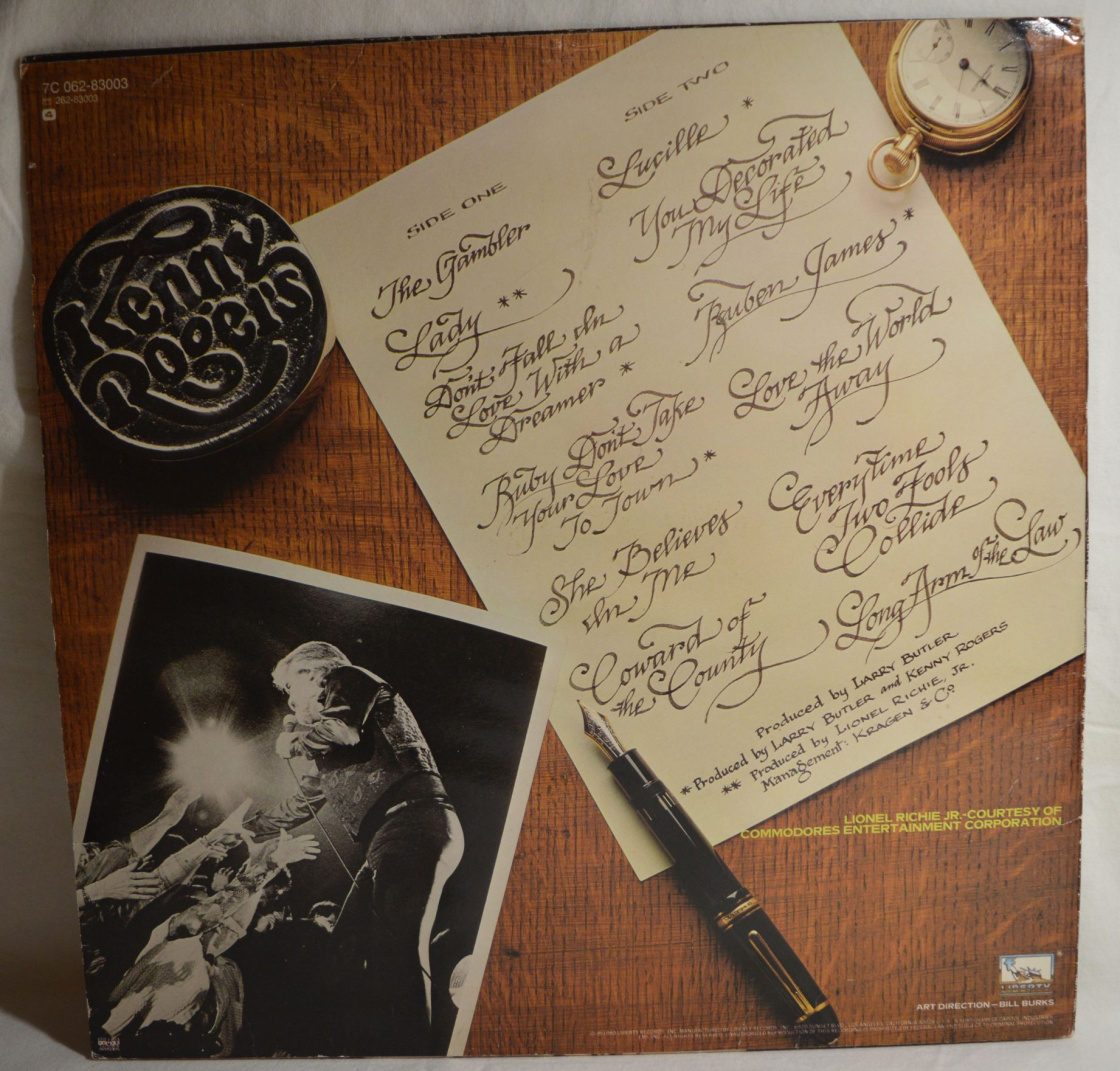 7C 062-83003
262-83003
4
Kenny
Rogers
SIDE ONE
The Gambler
Lady **
Don't Fall In
Love With a
Dreamer *
Ruby Don't Take
Your Love
To Town *
She Believes
In Me
Coward of
the County
SIDE TWO
Lucille *
You Decorated
My Life
Ruben James *
Love the World
Away
Everytime
Two Fools
Collide
Long Arm of the Law
Produced by LARRY BUTLER
* Produced by LARRY BUTLER and KENNY ROGERS
** Produced by LIONEL RICHIE, JR.
Management: KRAGEN & CO
LIONEL RICHIE JR.-COURTESY OF
COMMODORES ENTERTAINMENT CORPORATION
LIBERTY
ART DIRECTION—BILL BURKS